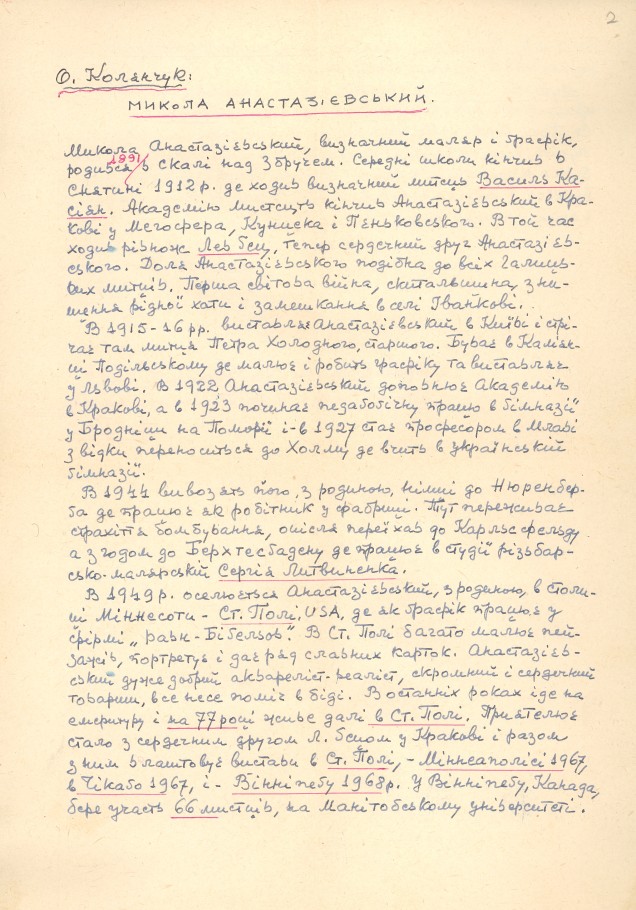 2
О. Коленчук:
МИКОЛА АНАСТАЗІЄВСЬКИЙ.
Микола Анастазієвський, визначний маляр і ґрафік,
1891
родився в Скалі над Збручем. Середні школи кінчив в
Снятині 1912 р. де ходив визначний митець Василь Ка-
сіян. Академію мистецтв кінчив Анастазієвський в Кра-
кові у Мегофера, Куниска і Пеньковського. В той час
ходив рівнож Лев Ґец, тепер сердечний друг Анастазієв-
ського. Доля Анастазієвського подібна до всіх Галиць-
ких митців. Перша світова війна, скитальщина, зни-
щення рідної хати і замешкання в селі Іванкові.
В 1915-16 рр. виставляє Анастазієвський в Київі і стрі-
чає там митця Петра Холодного, старшого. Буває в Камян-
ці Подільському де малює і робить ґрафіку та виставляє
у Львові. В 1922 Анастазієвський доповнює Академію
в Кракові, а в 1923 починає педаґоґічну працю в ґімназії
у Бродніци на Поморї і - в 1927 стає професором в Млаві
звідки переноситься до Холму де вчить в українській
ґімназії.
В 1944 вивозять його, з родиною, німці до Нюренбер-
ґа де працює як робітник у фабриці. Тут переживає
страхіття бомбування, опісля переїхав до Карльсфельду
а згодом до Берхтесґадену де працює в студії різьбар-
сько-малярській Сергія Литвиненка.
В 1949 р. оселюється Анастазієвський, з родиною, в столи-
ці Міннесоти - Ст. Полі, USA, де як ґрафік працює у
фірмі „Равн-Біґельов". В Ст. Полі багато малює пей-
зажів, портретує і дає ряд славних карток. Анастазієв-
ський дуже добрий акварелист-реаліст, скромний і сердечний
товариш, все несе поміч в біді. В останніх роках іде на
емеритуру і на 77 році живе далі в Ст. Полі. Приятелює
стало з сердечним другом Л. Ґецом у Кракові і разом
з ним влаштовує вистави в Ст. Полі, - Міннеаполісі 1967,
в Чікаґо 1967, і - Вінніпеґу 1968 р. У Вінніпеґу, Канада,
бере участь 66 мистців, на Манітобському університеті.